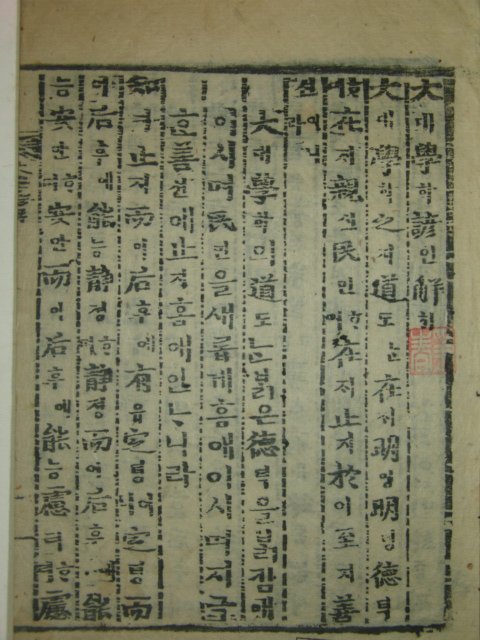 大대學학諺언解ᄒᆡ
大대學학之지道도ᄂᆞᆫ在ᄌᆡ明명明명德덕
ᄒᆞ며在ᄌᆡ親신民민ᄒᆞ며在ᄌᆡ止지於어至지善
션이니라
大대學학의道도ᄂᆞᆫᄇᆞᆰ은德덕을ᄇᆞᆰ킴애
이시며民민을새롭게홈애이시며지극
ᄒᆞᆫ善션에止지홈애인ᄂᆞ니라
知지止지而이后후에有유定뎡이니定뎡而
이后후에能능靜졍ᄒᆞ며靜졍而이后후에能
능安안ᄒᆞ며安안而이后후에能능慮려ᄒᆞ며慮